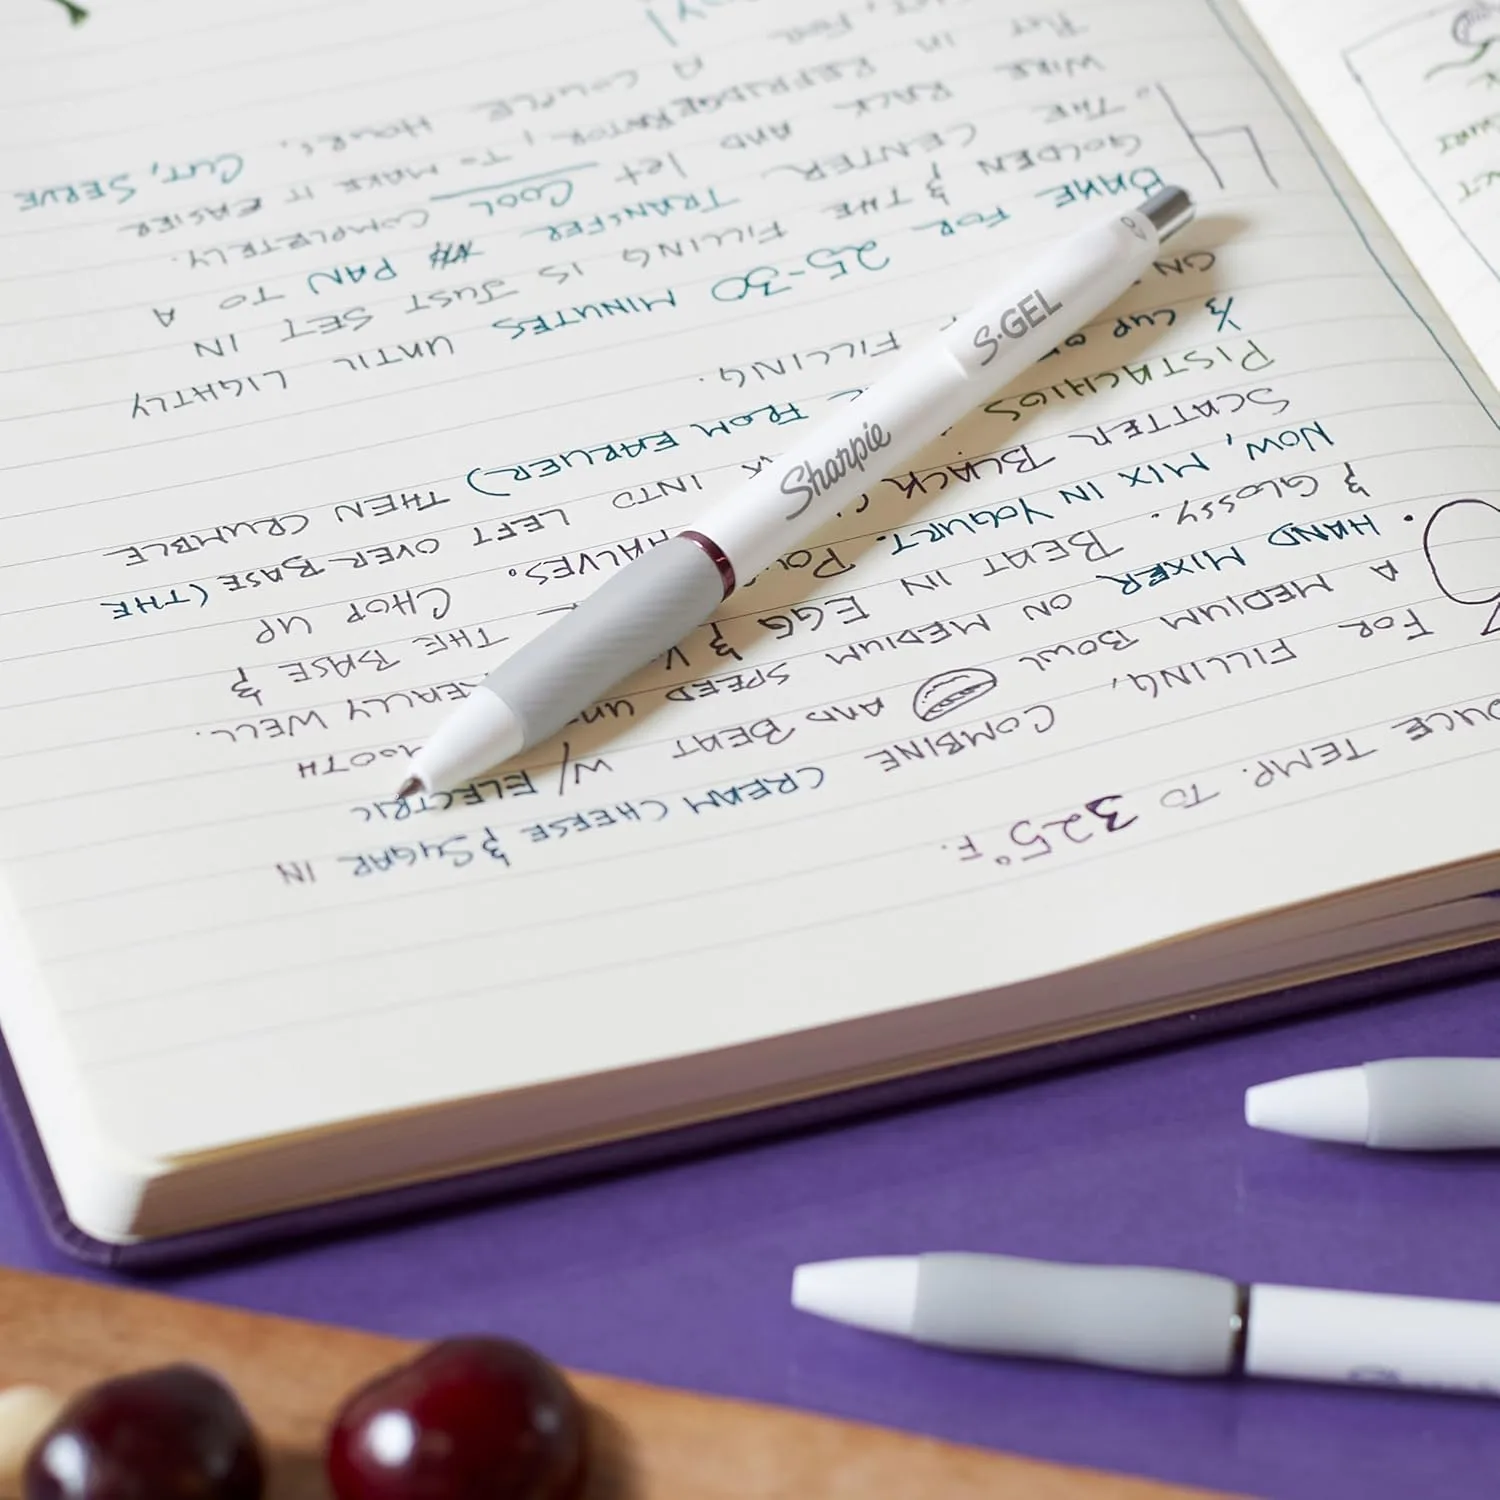 TEMP. TO 325°F.
FOR FILLING, COMBINE CREAM CHEESE & SUGAR IN
A MEDIUM BOWL AND BEAT W/ ELECTRIC
HAND MIXER ON MEDIUM SPEED
& GLOSSY. BEAT IN EGG & REALLY WELL.
NOW, MIX IN YOGURT. THE BASE &
SCATTER BLACK HALVES. CHOP UP
PISTACHIOS INTO LEFT OVER BASE (THE
⅓ CUP FROM EARLIER) THEN CRUMBLE
ON FILLING.
4
BAKE FOR 25-30 MINUTES UNTIL LIGHTLY
GOLDEN & THE FILLING IS JUST SET IN
THE CENTER TRANSFER PAN TO A
WIRE RACK AND let COOL COMPLETELY.
PUT IN REFRIDGERATOR, TO MAKE IT EASIER
A COUPLE HOURS. CUT, SERVE
Sharpie S·GEL